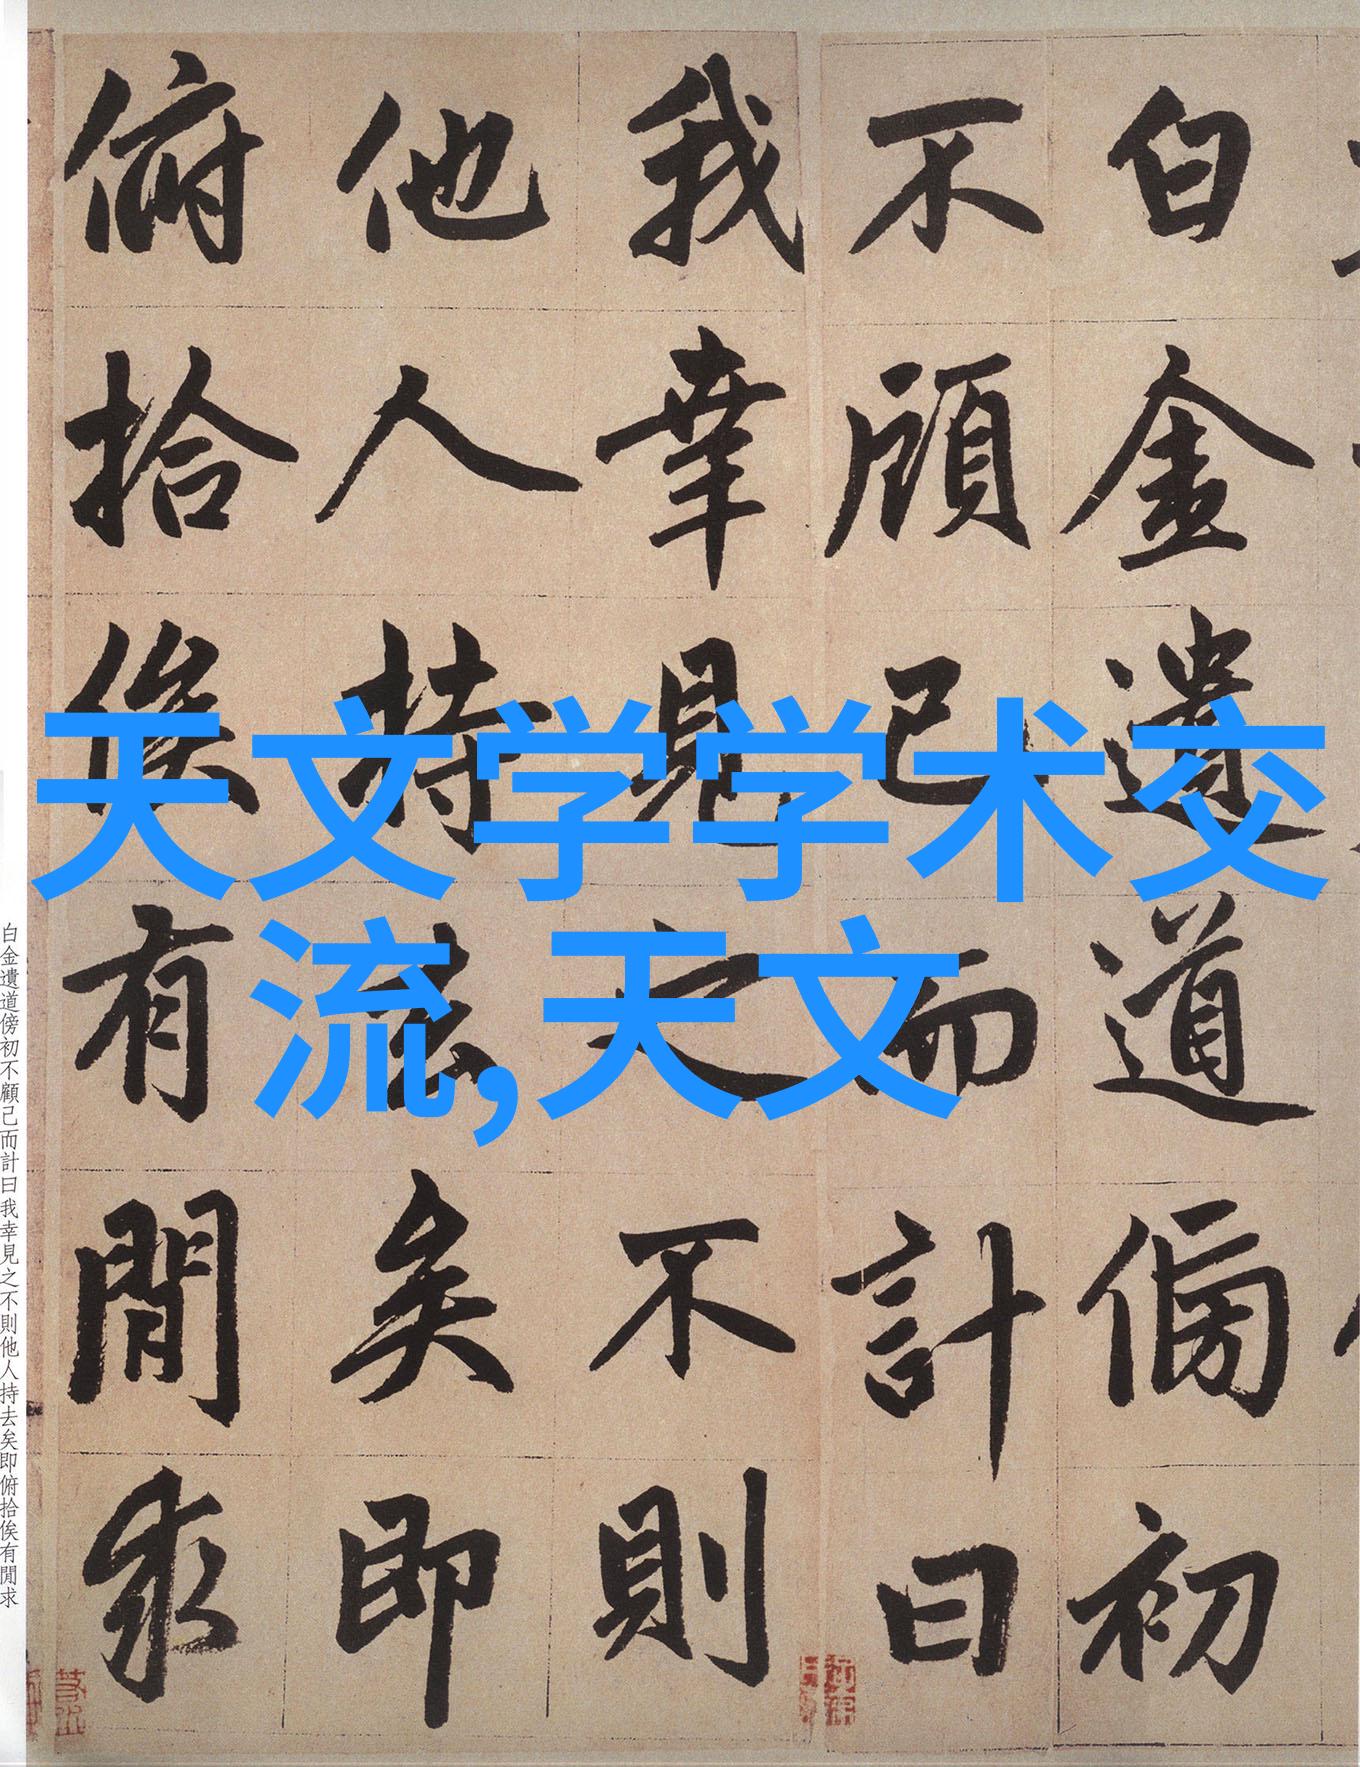 白金遺道傍初
不顧己而計曰
我幸見之不則
他人持去矣即
俯拾俟有閒求
天文学学术交
流,天文
白金遺道傍初不顧己而計曰我幸見之不則他人持去矣即俯拾俟有閒求